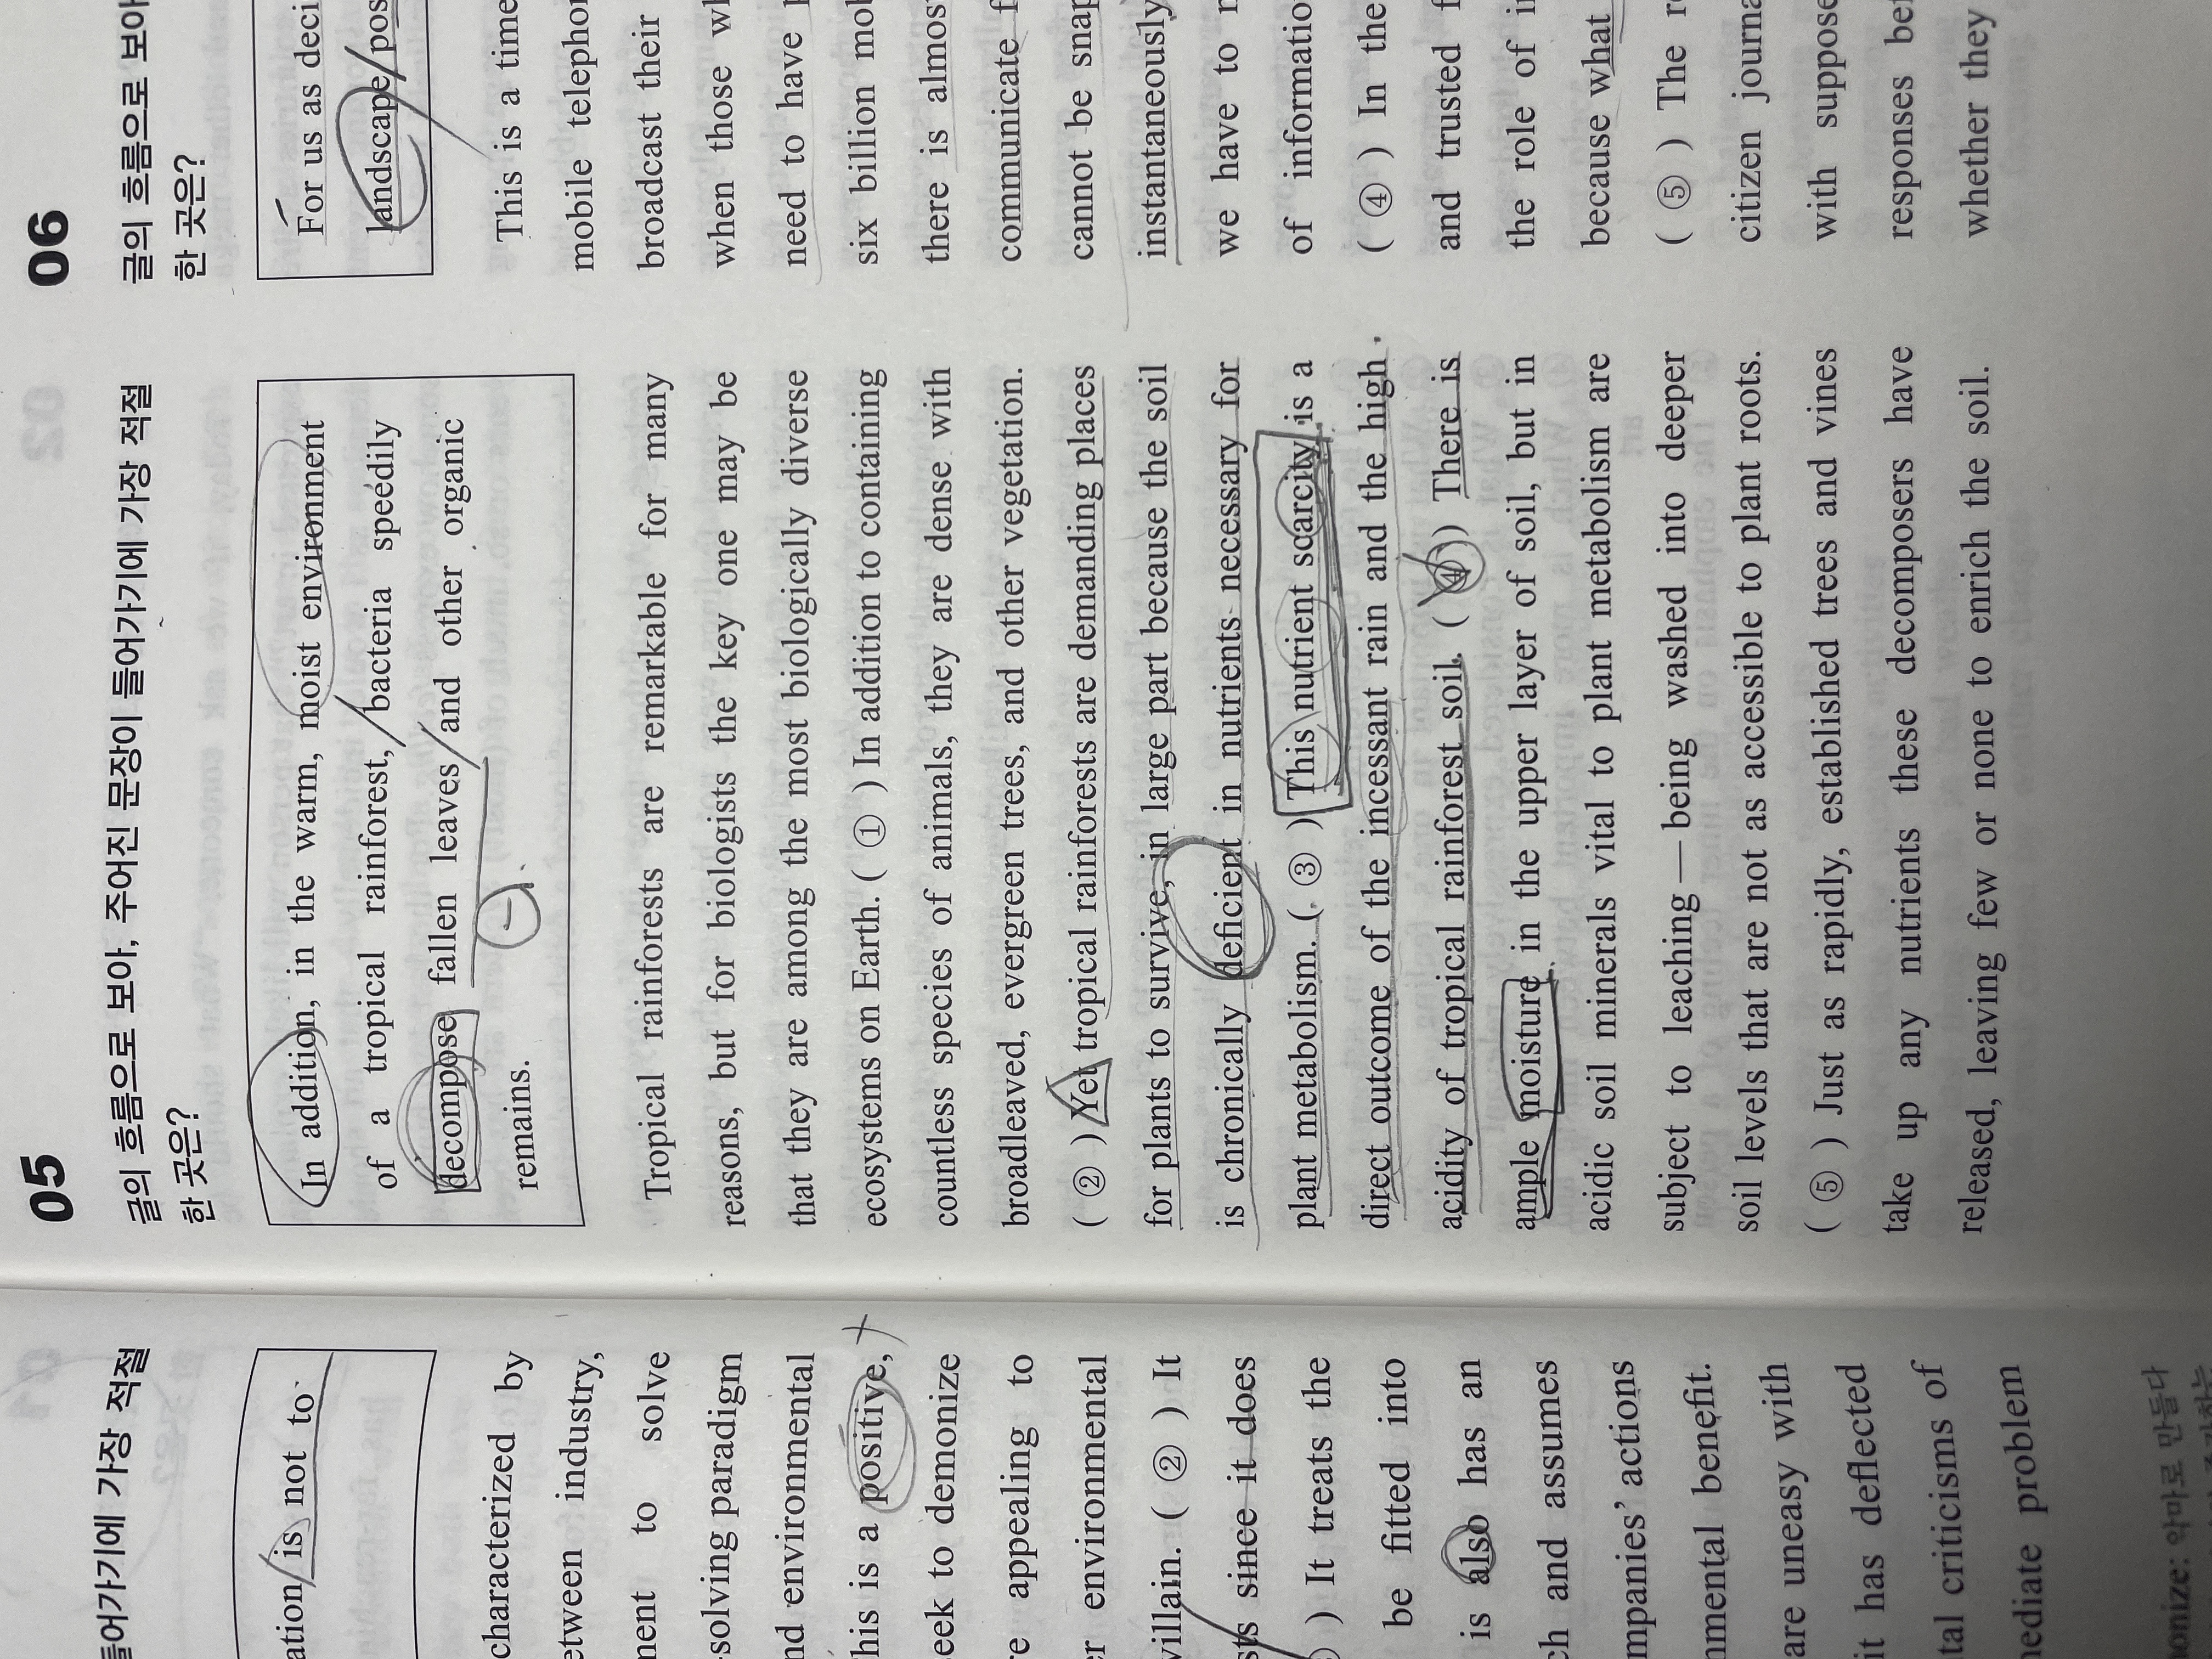 들어가기에 가장 적절
ation is not to
characterized by
etween industry,
ment to solve
-solving paradigm
nd environmental
his is a positive,
eek to demonize
re appealing to
r environmental
villain. ( ② ) It
sts since it does
) It treats the
be fitted into
is also has an
ch and assumes
mpanies' actions
nmental benefit.
are uneasy with
it has deflected
tal criticisms of
mediate problem
onize: 악마로 만들다
05
글의 흐름으로 보아, 주어진 문장이 들어가기에 가장 적절
한 곳은?
In addition, in the warm, moist environment
of a tropical rainforest, bacteria speedily
decompose fallen leaves and other organic
remains.
Tropical rainforests are remarkable for many
reasons, but for biologists the key one may be
that they are among the most biologically diverse
ecosystems on Earth. ( ① ) In addition to containing
countless species of animals, they are dense with
broadleaved, evergreen trees, and other vegetation.
( ② ) Yet tropical rainforests are demanding places
for plants to survive, in large part because the soil
is chronically deficient in nutrients necessary for
plant metabolism. ( ③ ) This nutrient scarcity is a
direct outcome of the incessant rain and the high
acidity of tropical rainforest soil. ( ④ ) There is
ample moisture in the upper layer of soil, but in
acidic soil minerals vital to plant metabolism are
subject to leaching—being washed into deeper
soil levels that are not as accessible to plant roots.
( ⑤ ) Just as rapidly, established trees and vines
take up any nutrients these decomposers have
released, leaving few or none to enrich the soil.
06
글의 흐름으로 보아
한 곳은?
For us as deci
landscape pos
This is a time
mobile telephon
broadcast their
when those wh
need to have p
six billion mob
there is almos
communicate f
cannot be snap
instantaneously
we have to n
of informatio
( ④ ) In the
and trusted f
the role of in
because what
( ⑤ ) The re
citizen journa
with suppose
responses bef
whether they